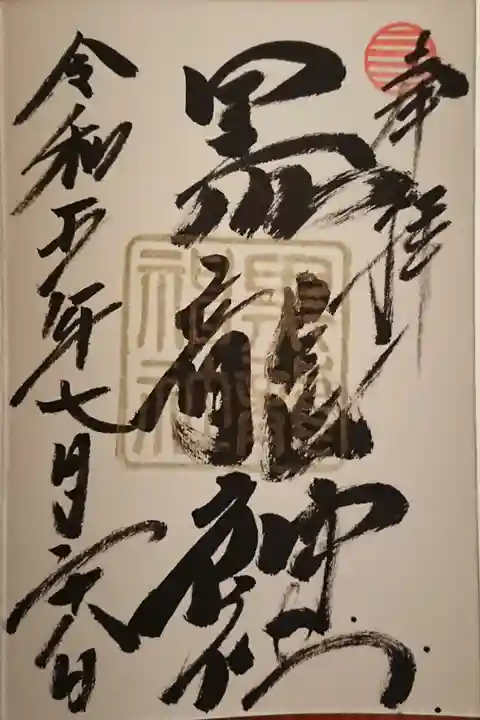 奉拝
黒龍神社
黒龍
神社
令和五年七月 日